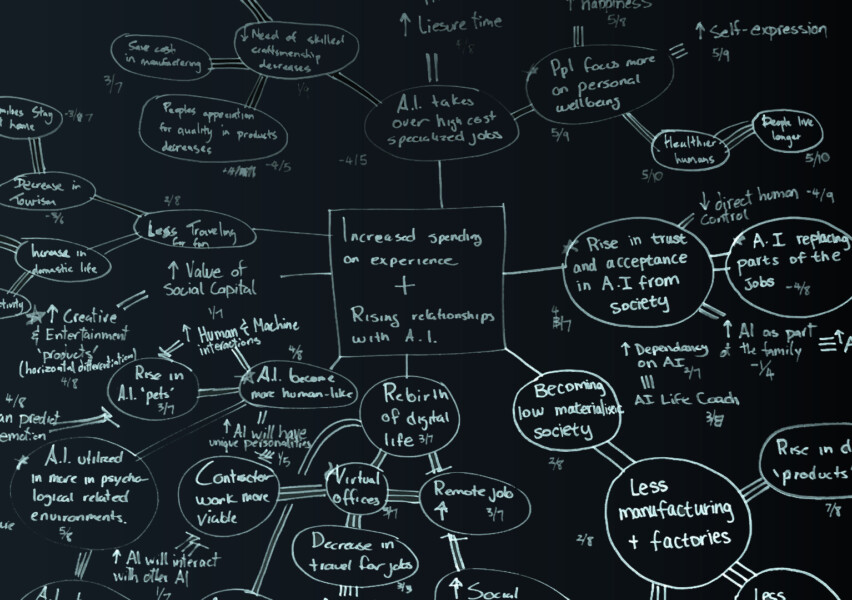 ↑ Liesure time
↑ happiness
5/8
↑ Self-expression
5/9
Save cost
in manufacturing
3/7
↓ Need of skilled
craftsmenship
decreases
Peoples appreciation
for quality in products
decreases
-4/5
A.I. takes
over high cost
specialized jobs
-4/5
Ppl focus more
on personal
wellbeing
5/9
Healthier
humans
5/10
People live
longer
5/10
Stay
home
Decrease in
Tourism
-3/6
2/8
Less Traveling
for fun
Increase in
domestic life
↑ Value of
Social Capital
1/7
Increased spending
on experience
+
Rising relationships
with A.I.
Rise in trust
and acceptance
in A.I from
society
↓ direct human -4/9
control
A.I replacing
parts of the
jobs
-4/8
↑ Creative
& Entertainment
'products'
(horizontal differentiation)
4/8
↑ Human & Machine
interactions
4/8
Rise in
A.I. 'pets'
3/7
A.I. become
more human-like
↑ AI will have
unique personalities
1/5
Rebirth
of digital
life 3/7
↑ Dependancy
on AI
3/7
AI Life Coach
↑ AI as part
of the family
-1/4
Becoming
low materialised
society
2/8
4/8
predict
emotion
A.I. utilized
in more in psycho-
logical related
environments.
5/8
Contractor
work more
viable
Virtual
offices
Remote job
↑
3/7
Less
manufacturing
+ factories
2/8
Rise in
'products'
7/8
↑ AI will interact
with other AI
1/7
Decrease in
travel for jobs
3/3
↑ Social
Less